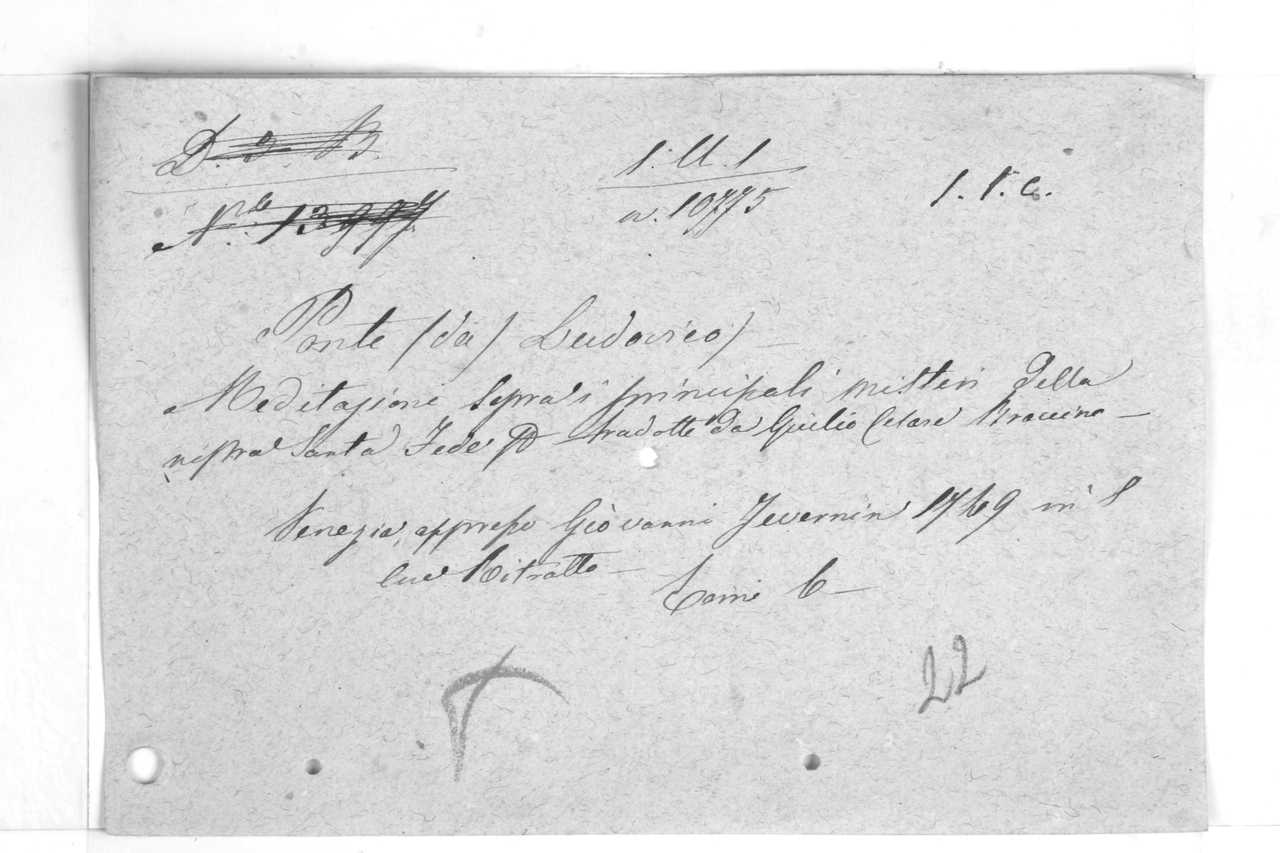 D. 3. B.
N.ro 13997
1. U. 1
n. 10775
1. F. 6.
Ponte (da) Ludovico)
Meditazioni sopra i principali misteri della
nostra Santa Fede tradotte da Giulio Cesare Braccino
Venezia, appresso Giovanni Tevernin 1749 in 8
con Ritratto
Tomi 6
22